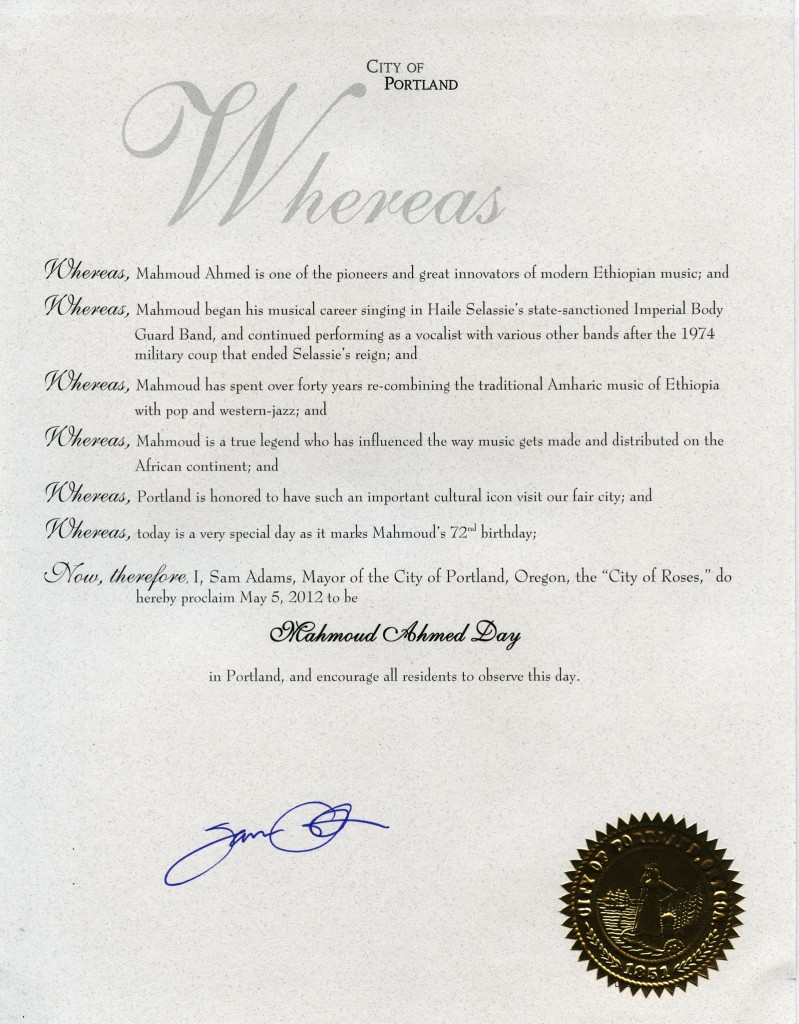 CITY OF
PORTLAND
Whereas
Whereas, Mahmoud Ahmed is one of the pioneers and great innovators of modern Ethiopian music; and
Whereas, Mahmoud began his musical career singing in Haile Selassie's state-sanctioned Imperial Body
Guard Band, and continued performing as a vocalist with various other bands after the 1974
military coup that ended Selassie's reign; and
Whereas, Mahmoud has spent over forty years re-combining the traditional Amharic music of Ethiopia
with pop and western-jazz; and
Whereas, Mahmoud is a true legend who has influenced the way music gets made and distributed on the
African continent; and
Whereas, Portland is honored to have such an important cultural icon visit our fair city; and
Whereas, today is a very special day as it marks Mahmoud's 72nd birthday;
Now, therefore, I, Sam Adams, Mayor of the City of Portland, Oregon, the "City of Roses," do
hereby proclaim May 5, 2012 to be
Mahmoud Ahmed Day
in Portland, and encourage all residents to observe this day.
Sam
CITY OF PORTLAND, OREGON
1851